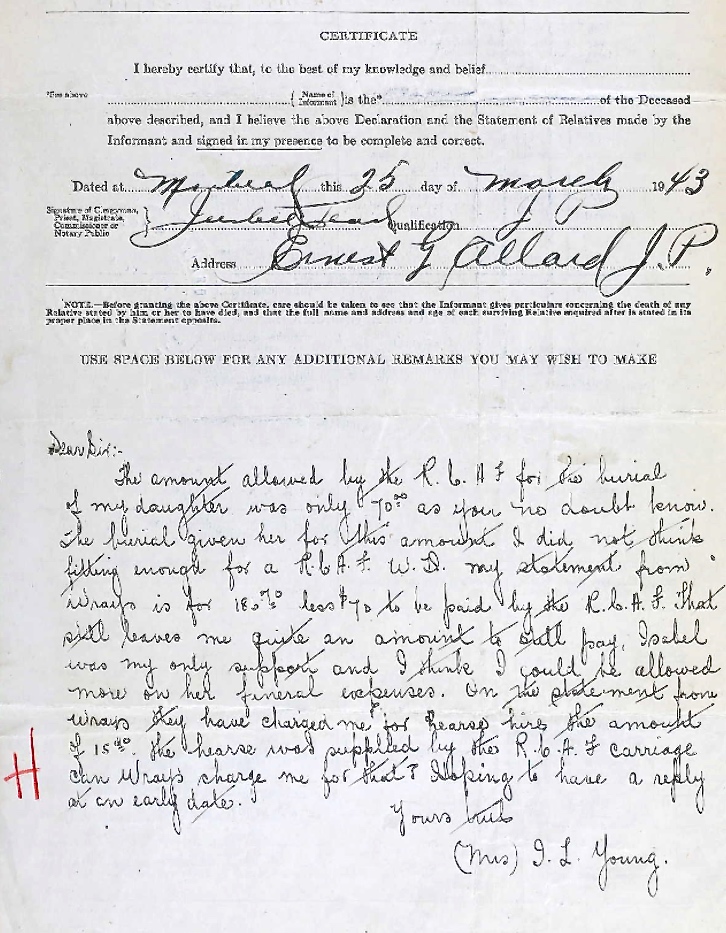 CERTIFICATE
I hereby certify that, to the best of my knowledge and belief
*See above { Name of Informant } is the* of the Deceased
above described, and I believe the above Declaration and the Statement of Relatives made by the
Informant and signed in my presence to be complete and correct.
Dated at Montreal this 25 day of March 1943
Signature of Clergyman, Priest, Magistrate, Commissioner or Notary Public } Qualification J P
Address Ernest G Allard J.P.
NOTE.—Before granting the above Certificate, care should be taken to see that the Informant gives particulars concerning the death of any
Relative stated by him or her to have died, and that the full name and address and age of each surviving Relative enquired after is stated in its
proper place in the Statement opposite.
USE SPACE BELOW FOR ANY ADDITIONAL REMARKS YOU MAY WISH TO MAKE
Dear Sir:-
The amount allowed by the R.C.A F for the burial
of my daughter was only 70.00 as you no doubt know.
The burial given her for this amount I did not think
fitting enough for a R.C.A.F. W.D. my statement from
Wrays is for less $70 to be paid by the R.C.A.F. That
still leaves me quite an amount to still pay, Isabel
was my only support and I think I could be allowed
more on her funeral expenses. On the statement from
Wrays they have charged me for hearse hire the amount
of 15.00. the hearse was supplied by the R.C.A.F carriage
can Wrays charge me for that? Hoping to have a reply
at an early date.
Yours truly
(Mrs) I. L. Young.
H